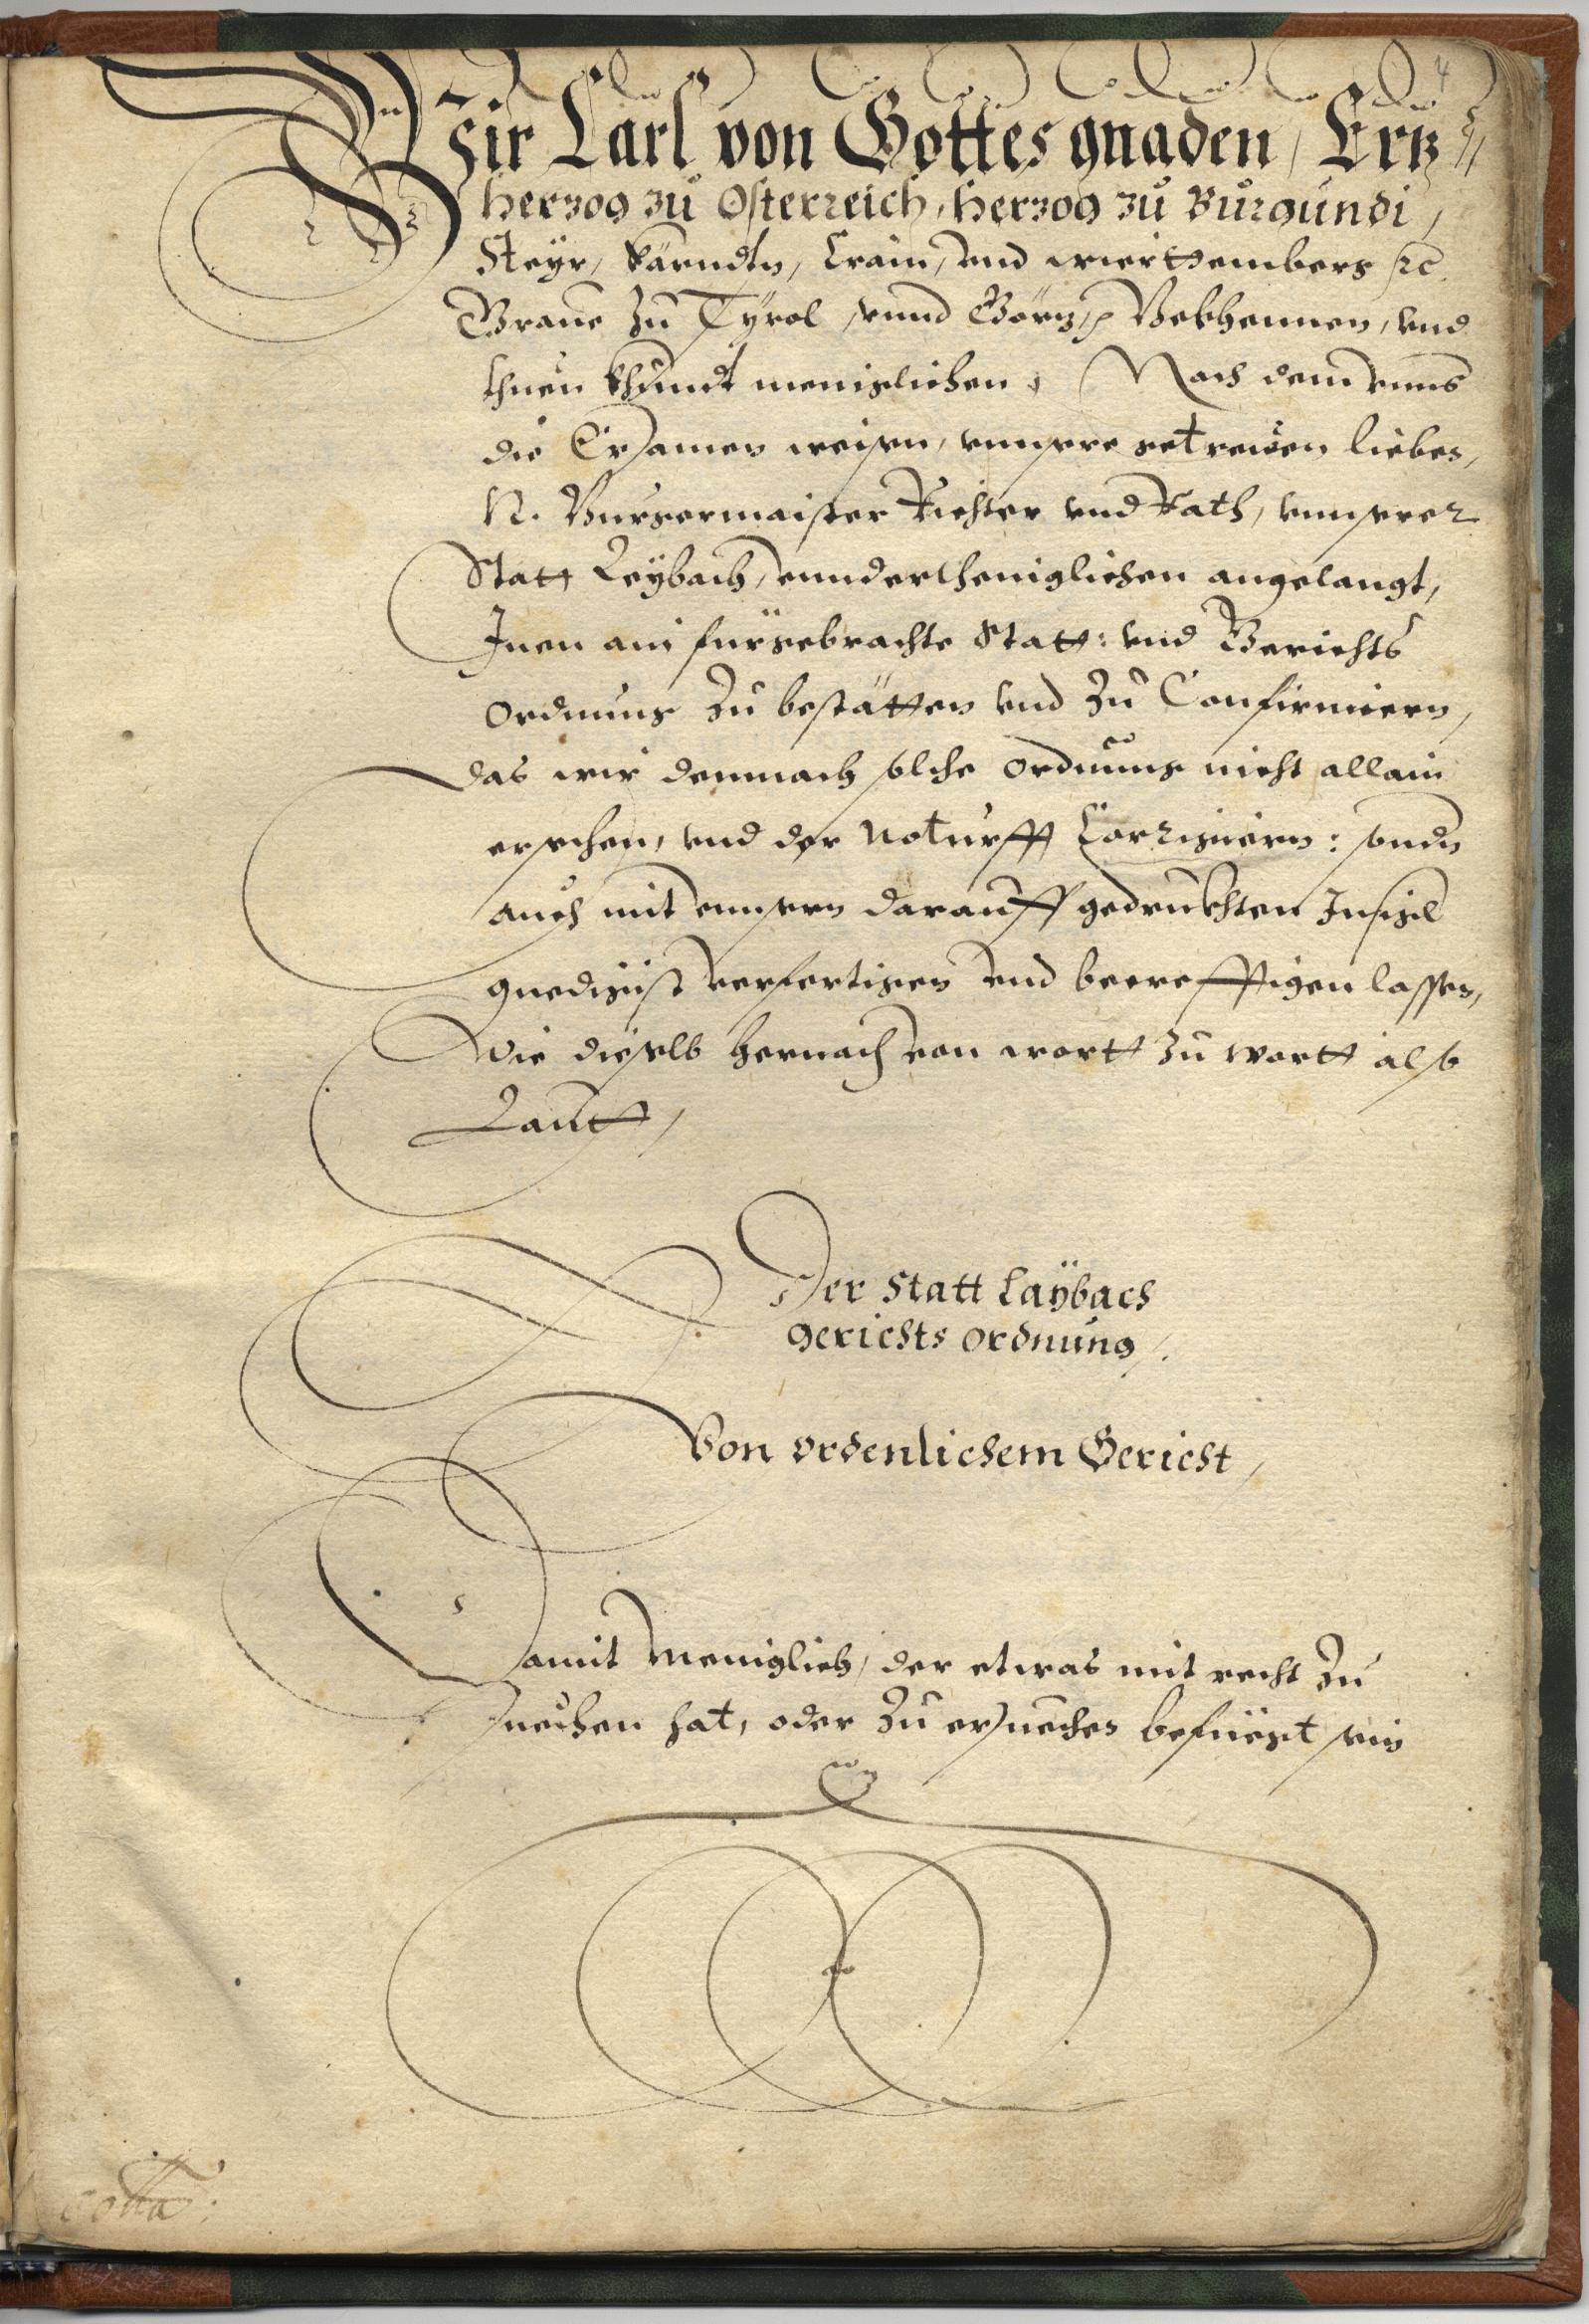 4
Wir Carl von Gottes gnaden, Ertz=
herzog zů Osterreich, herzog zů Burgundi,
Steÿr, Kärndtn, Crain, vnd wierttemberg ꝛc
Graue zů Tÿrol, vnnd Görz, ꝛ Bekhennen, vnd
thuen khundt meniglichen, Nach dem vnns
die Ersamen weisen, vnnsere getrewen lieben,
N. Burgermaister Richter vnd Rath, vnnserer
Statt Leÿbach, vnnderthenigclichen angelangt,
Inen ain fürgebrachte Statt: vnd Gerichts
ordnung zů bestätten vnd zů Confirmiern,
das wir demnach solche ordnung nicht allain
ersehen, vnd der noturfft Corrigiern: sondn
auch mit vnnsern darauff gedruckhten Insigl
gnedigist verfertigen vnd becrefftigen lassen,
Wie dieselb hernach von wortt zů wortt also
Lautt,
Der Statt Laÿbach
gerichts ordnung,.
Von ordenlichem Gericht,
Damit meniglich, der etwas mit recht zů
suechen hat, oder zů ersuechen befüegt sein